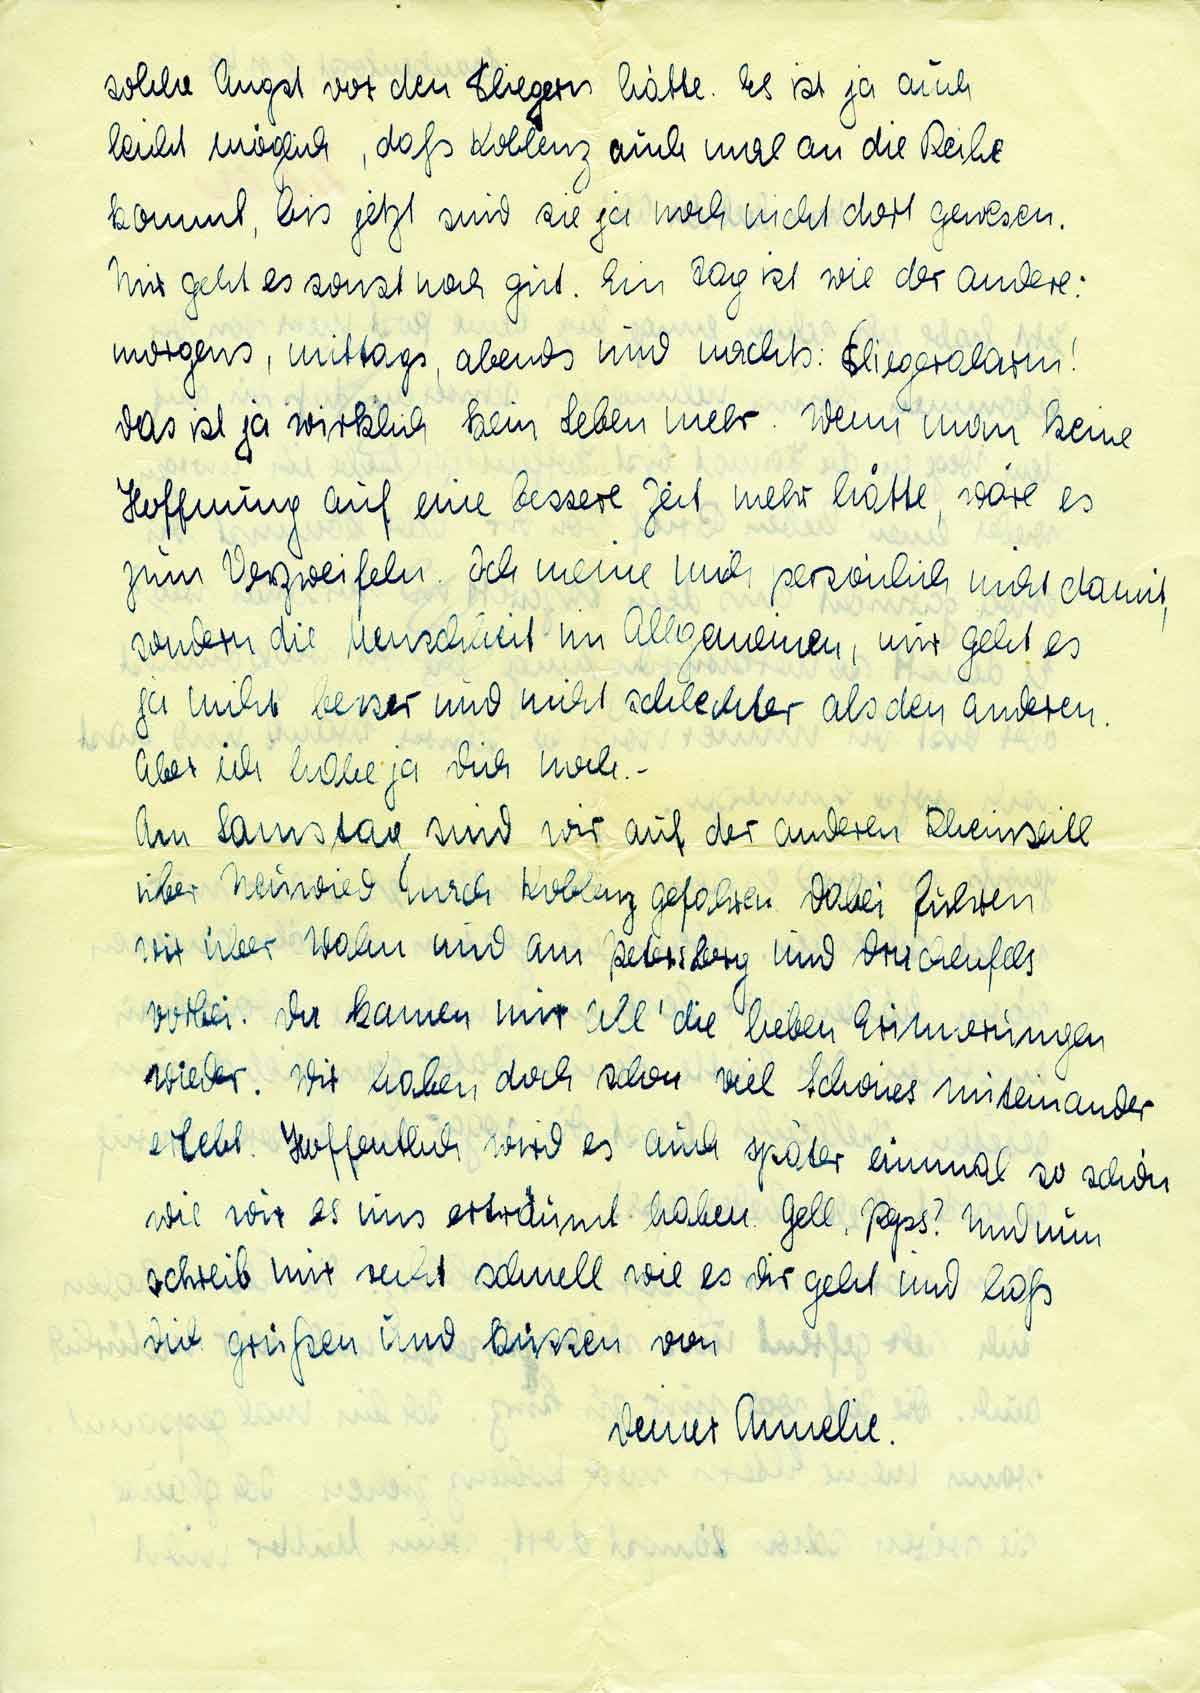 solche Angst vor den Fliegern hätte. Es ist ja auch
leicht möglich, daß Koblenz auch mal an die Reihe
kommt, bis jetzt sind sie ja noch nicht dort gewesen.
Mir geht es sonst noch gut. Ein Tag ist wie der andere:
morgens, mittags, abends und nachts: Fliegeralarm!
Das ist ja wirklich kein Leben mehr. Wenn man keine
Hoffnung auf eine bessere Zeit mehr hätte, wäre es
zum Verzweifeln. Ich meine mich persönlich nicht damit,
sondern die Menschheit im Allgemeinen, mir geht es
ja nicht besser und nicht schlechter als den anderen.
Aber ich habe ja Dich noch.-
Am Samstag sind wir auf der anderen Rheinseite
über Neuwied nach Koblenz gefahren. Dabei fuhren
wir über Wahn und am Petersberg und Drachenfels
vorbei. Da kamen mir all' die lieben Erinnerungen
wieder. Wir haben doch schon viel Schönes miteinander
erlebt. Hoffentlich wird es auch später einmal so schön
wie wir es uns erträumt haben. Gell, Paps? Und nun
schreib mir recht schnell wie es Dir geht und laß
Dich grüßen und küssen von
Deiner Annelie.